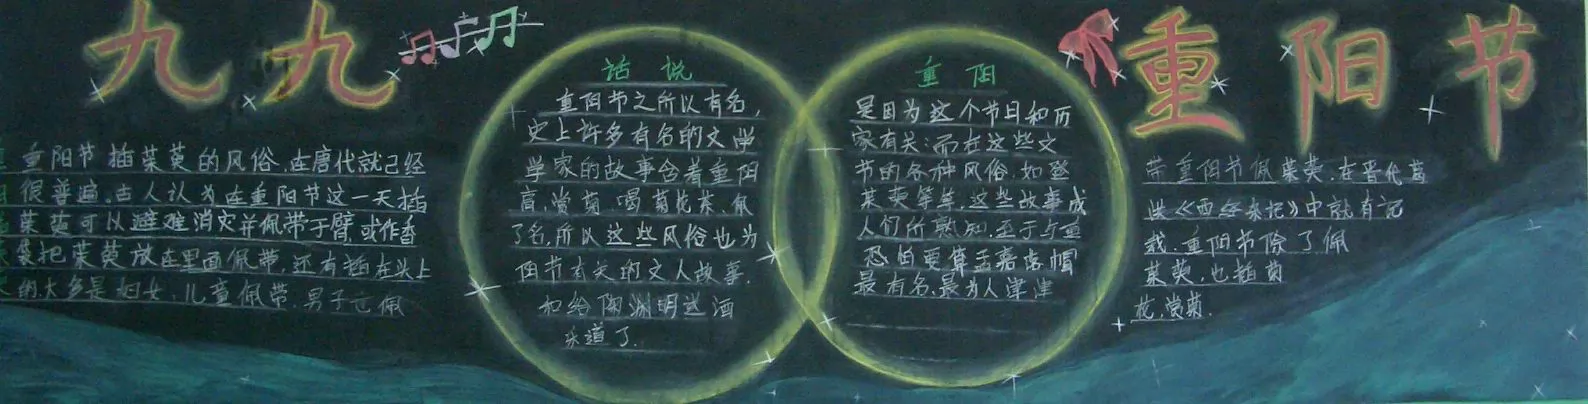 九九
重阳节
重阳节插茱萸的风俗,在唐代就已经
很普遍。古人认为在重阳节这一天插
茱萸可以避难消灾并佩带于臂,或作香
袋把茱萸放在里面佩带,还有插在头上
的。大多是妇女、儿童佩带。男子也佩
话说
重阳节之所以有名,
史上许多有名的文学
学家的故事含着重阳
高,赏菊,喝菊花茶、佩
了名,所以这些风俗也为
阳节有关的文人故事.
和给陶渊明送酒
乐道了.
重阳
是因为这个节日和历
家有关;而在这些文
节的各种风俗,如登
茱萸等等,这些故事成
人们所熟知,至于与重
恐怕要算孟嘉落帽
最有名,最为人津津
带重阳节佩茱萸,在晋代葛
洪《西经杂记》中就有记
载.重阳节除了佩
茱萸,也插菊
花,赏菊.